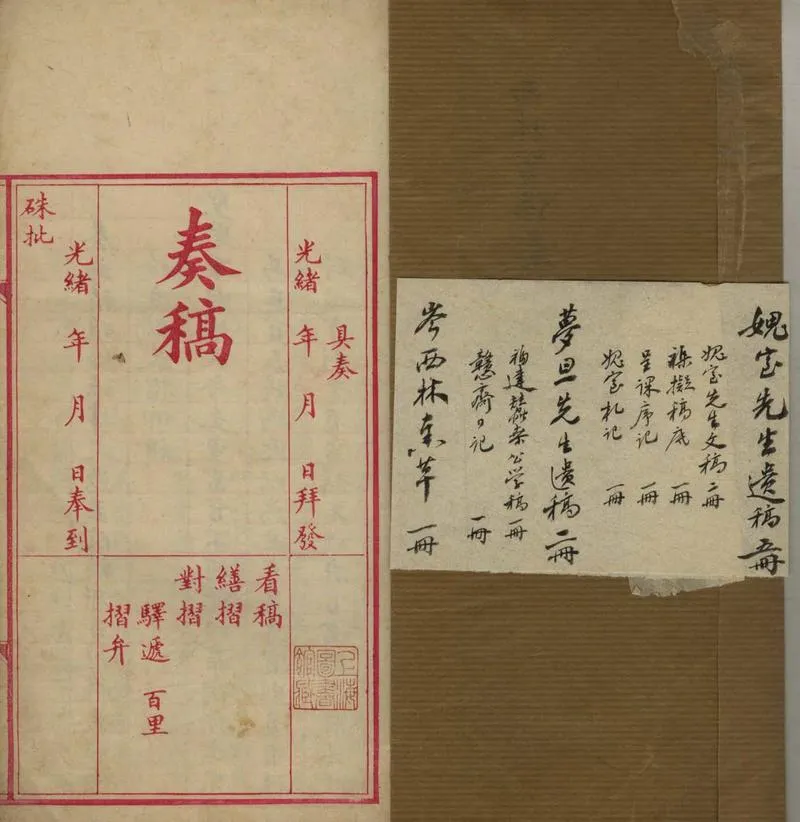 媿室先生遺稿 五冊
媿室先生文稿 二冊
襍擬稿底 一冊
呈課序記 一冊
媿室札記 一冊
夢旦先生遺稿 二冊
福建蠶桑公学稿 一冊
慧齋日记 一冊
岑西林奏草 一冊
具奏
光緒 年 月 日拜發
奏稿
看稿
繕摺
對摺
驛遞 百里
摺弁
光緒 年 月 日奉到
硃批
上海
圖書
館藏